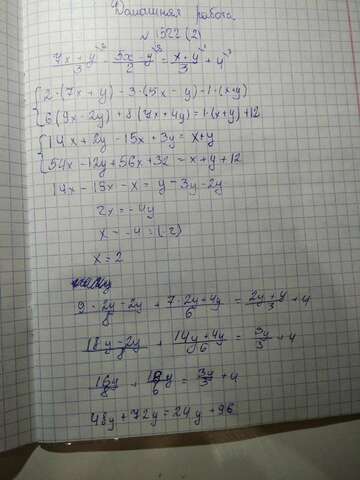 Домашняя работа
№ 1322 (2)
7x + y / 3 - 5x - y / 2 = x + y / 3 + 4
{ 2 · (7x + y) - 3 · (5x - y) = 1 · (x + y)
6 (9x - 2y) + 8 (7x + 4y) = 1 · (x + y) + 12
{ 14x + 2y - 15x + 3y = x + y
54x - 12y + 56x + 32 = x + y + 12
14x - 15x - x = y - 3y - 2y
2x = -4y
x = -4 = (-2)
x = 2
9 · 2y - 2y / 8 + 7 · 2y + 4y / 6 = 2y + y / 3 + 4
18y - 2y / 8 + 14y + 4y / 6 = 3y / 3 + 4
16y / 8 + 18y / 6 = 3y / 3 + 4
48y + 72y = 24y + 96